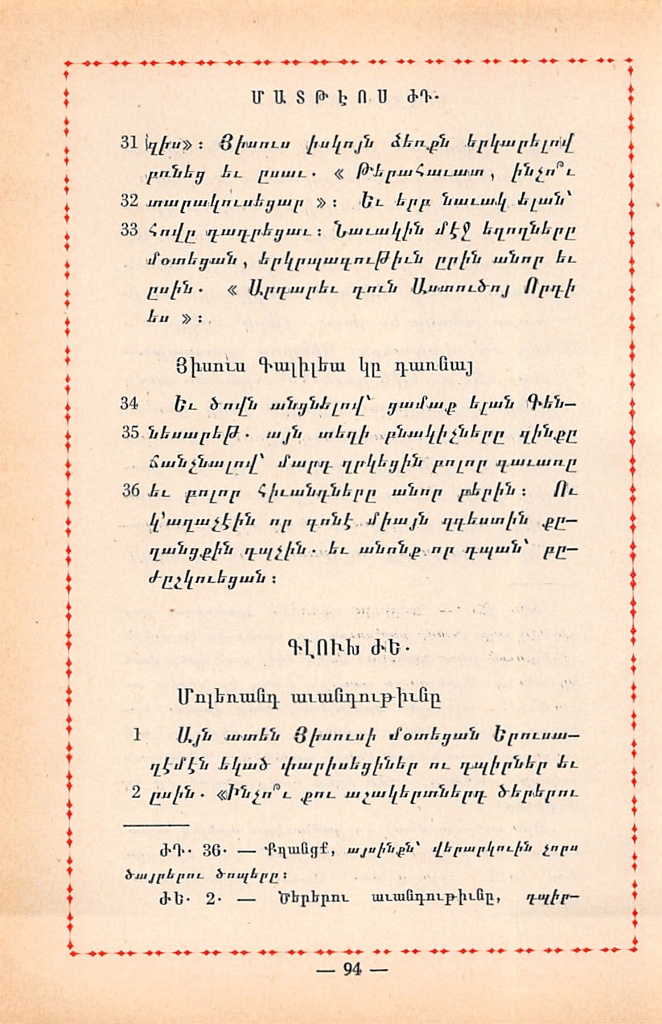 ՄԱՏԹԷՈՍ ԺԴ.
31 զիս»։ Յիսուս իսկոյն ձեռքն երկարելով
բռնեց եւ ըսաւ. « Թերահաւատ, ինչո՞ւ
32 տարակուսեցար »։ Եւ երբ նաւակ ելան՝
33 հովը դադրեցաւ։ Նաւակին մէջ եղողները
մօտեցան, երկրպագութիւն ըրին անոր եւ
ըսին. « Արդարեւ դուն Աստուծոյ Որդի
ես »։
Յիսուս Գալիլեա կը դառնայ
34 Եւ ծովն անցնելով՝ ցամաք ելան Գեն—
35 նեսարեթ. այն տեղի բնակիչները զինքը
ճանչնալով՝ մարդ ղրկեցին բոլոր գաւառը
36 եւ բոլոր հիւանդները անոր բերին։ Ու
կ՚աղաչէին որ գոնէ միայն զգեստին քը—
ղանցքին դպչին. եւ անոնք որ դպան՝ բը—
ժըշկուեցան։
ԳԼՈՒԽ ԺԵ.
Մոլեռանդ աւանդութիւնը
1 Այն ատեն Յիսուսի մօտեցան Երուսա—
ղէմէն եկած փարիսեցիներ ու դպիրներ եւ
2 ըսին. «Ինչո՞ւ քու աշակերտներդ ծերերու
ԺԴ. 36. — Քղանցք, այսինքն՝ վերարկուին չորս
ծայրերու ծոպերը։
ԺԵ. 2. — Ծերերու աւանդութիւնը, դպիր—
— 94 —